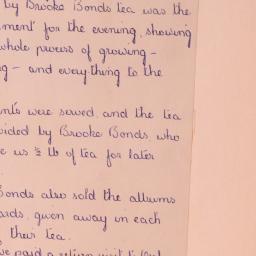 by Brooke Bonds tea was the
ment for the evening, showing
whole process of growing -
g - and everything to the
nts were served, and the tea
vided by Brooke Bonds, who
e us ½ lb of tea for later
Bonds also sold the albums
ards, given away in each
their tea.
we paid a return visit to